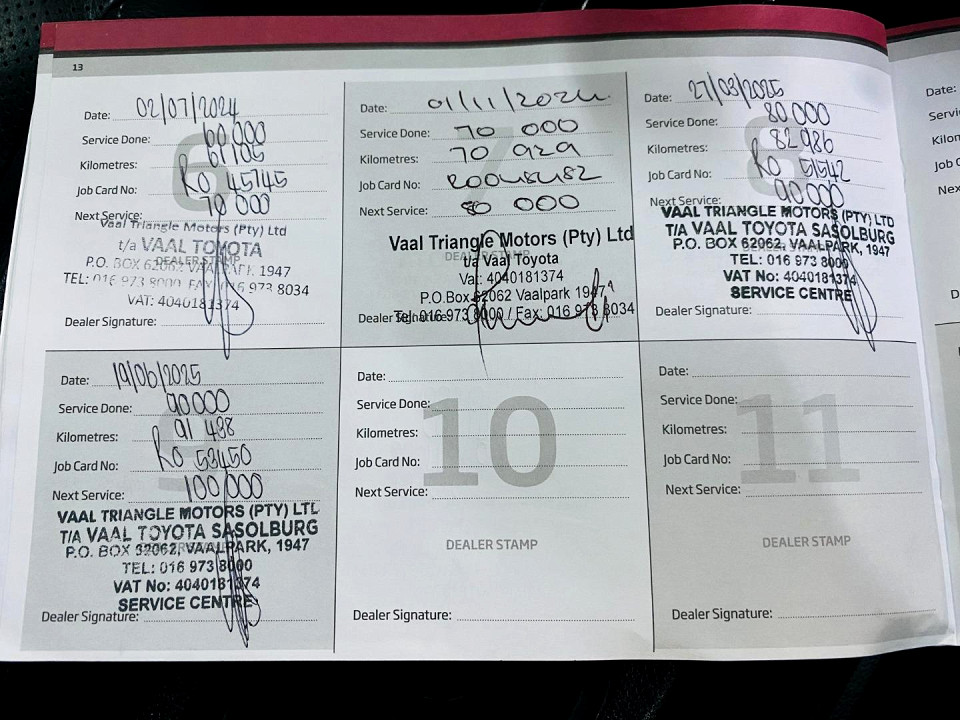 13
Date: 02/07/2024
Service Done: 60 000
Kilometres: 61 105
Job Card No: RO 45745
Next Service: 70 000
Vaal Triangle Motors (Pty) Ltd
t/a VAAL TOYOTA
P.O. BOX 62062 VAALPARK, 1947
TEL: 016 973 8000 / FAX: 016 973 8034
VAT: 4040181374
Dealer Signature:
6
Date: 01/11/2024
Service Done: 70 000
Kilometres: 70 929
Job Card No:
Next Service: 80 000
Vaal Triangle Motors (Pty) Ltd
t/a Vaal Toyota
Vat: 4040181374
P.O.Box 62062 Vaalpark 1947
Tel: 016 973 8000 / Fax: 016 973 8034
Dealer Signature:
7
Date: 27/03/2025
Service Done: 80.000
Kilometres: 82986
Job Card No: RO 51542
Next Service: 90 000
VAAL TRIANGLE MOTORS (PTY) LTD
T/A VAAL TOYOTA SASOLBURG
P.O. BOX 62062, VAALPARK, 1947
TEL: 016 973 8000
VAT No: 4040181374
SERVICE CENTRE
Dealer Signature:
8
Date: 19/06/2025
Service Done: 90000
Kilometres: 91 488
Job Card No: RO 53450
Next Service: 100 000
VAAL TRIANGLE MOTORS (PTY) LTD
T/A VAAL TOYOTA SASOLBURG
P.O. BOX 62062, VAALPARK, 1947
TEL: 016 973 8000
VAT No: 4040181374
SERVICE CENTRE
Dealer Signature:
9
Date:
Service Done:
Kilometres:
Job Card No:
Next Service:
10
DEALER STAMP
Dealer Signature:
Date:
Service Done:
Kilometres:
Job Card No:
Next Service:
11
DEALER STAMP
Dealer Signature:
Date: